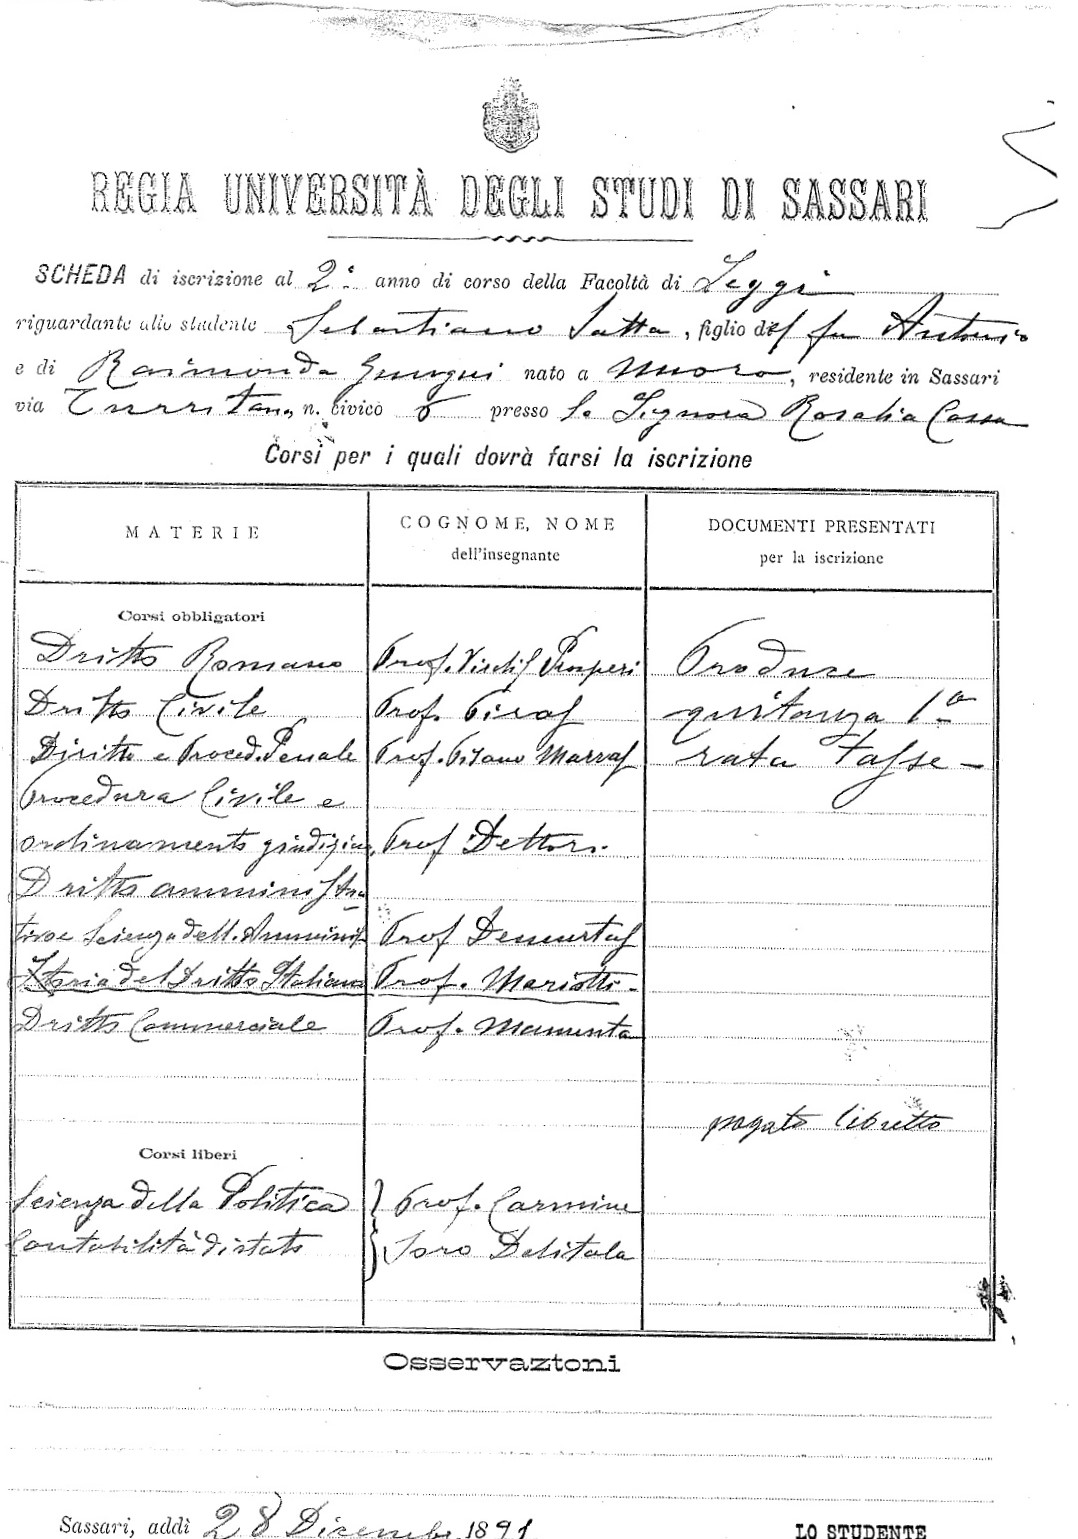 REGIA UNIVERSITÀ DEGLI STUDI DI SASSARI
SCHEDA di iscrizione al 2° anno di corso della Facoltà di Leggi
riguardante allo studente Sebastiano Satta, figlio del fu Antonio
e di Raimonda Gungui nato a Nuoro, residente in Sassari
via Turritana, n. civico 6 presso la Signora Rosalia Cassa
Corsi per i quali dovrà farsi la iscrizione
MATERIE
COGNOME, NOME dell'insegnante
DOCUMENTI PRESENTATI per la iscrizione
Corsi obbligatori
Dritto Romano Prof. Prosperi Produce
Dritto Civile Prof. quitanza 1ª
Diritto e Proced. Penale Prof. Pisano Marras rata Tasse -
Procedura Civile e
ordinamento giudiziar. Prof Dettori
Dritto amministra
tivo e Scienza dell. Amminis Prof Demurtas
Storia del Dritto Italiano Prof. Mariotti -
Dritto Commerciale Prof. Mamunta
pagato libretto
Corsi liberi
Scienza della Politica } Prof. Carmine
Contabilità di stato } Soro Delitala
Osservaztoni
Sassari, addì 28 Dicembre 1891
LO STUDENTE